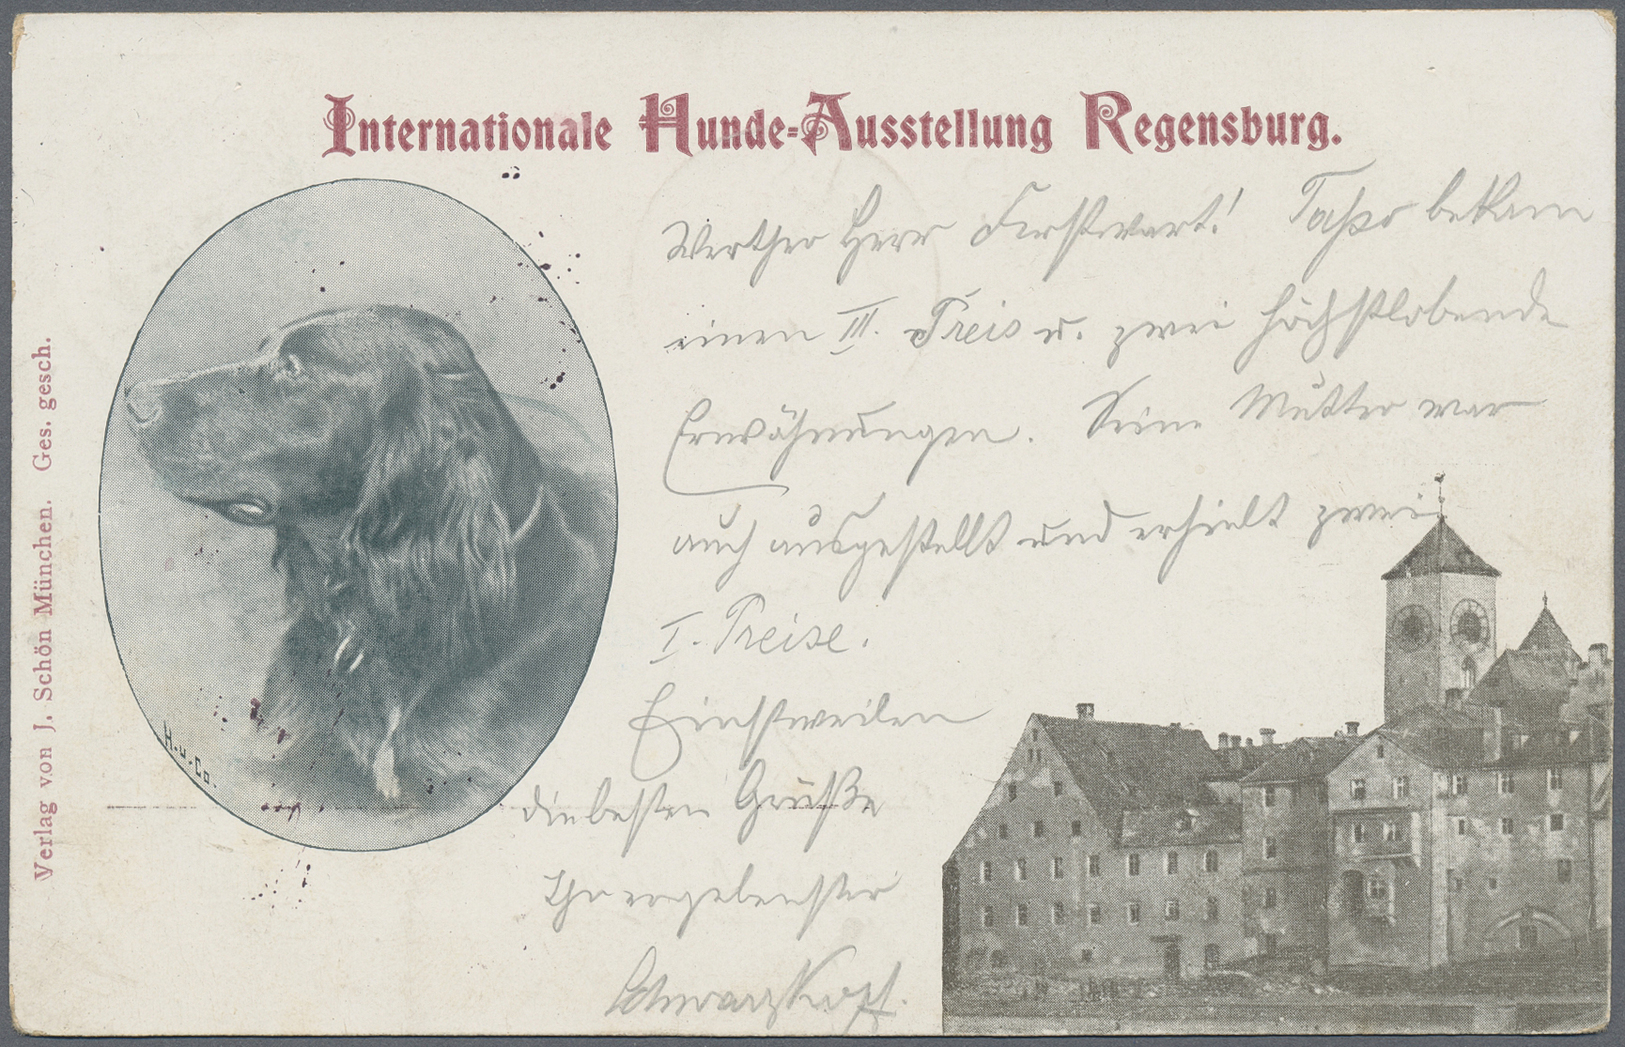 Internationale Hunde-Ausstellung Regensburg.
Werther Herr Forstwart! Tasso bekam
einen III. Preis u. zwei höchstlobende
Erwähnungen. Seine Mutter war
auch ausgestellt und erhielt zwei
I. Preise.
Einstweilen
die besten Grüße
Ihr ergebenster
Schwarzkopf.
H. u. Co.
Verlag von J. Schön München. Ges. gesch.